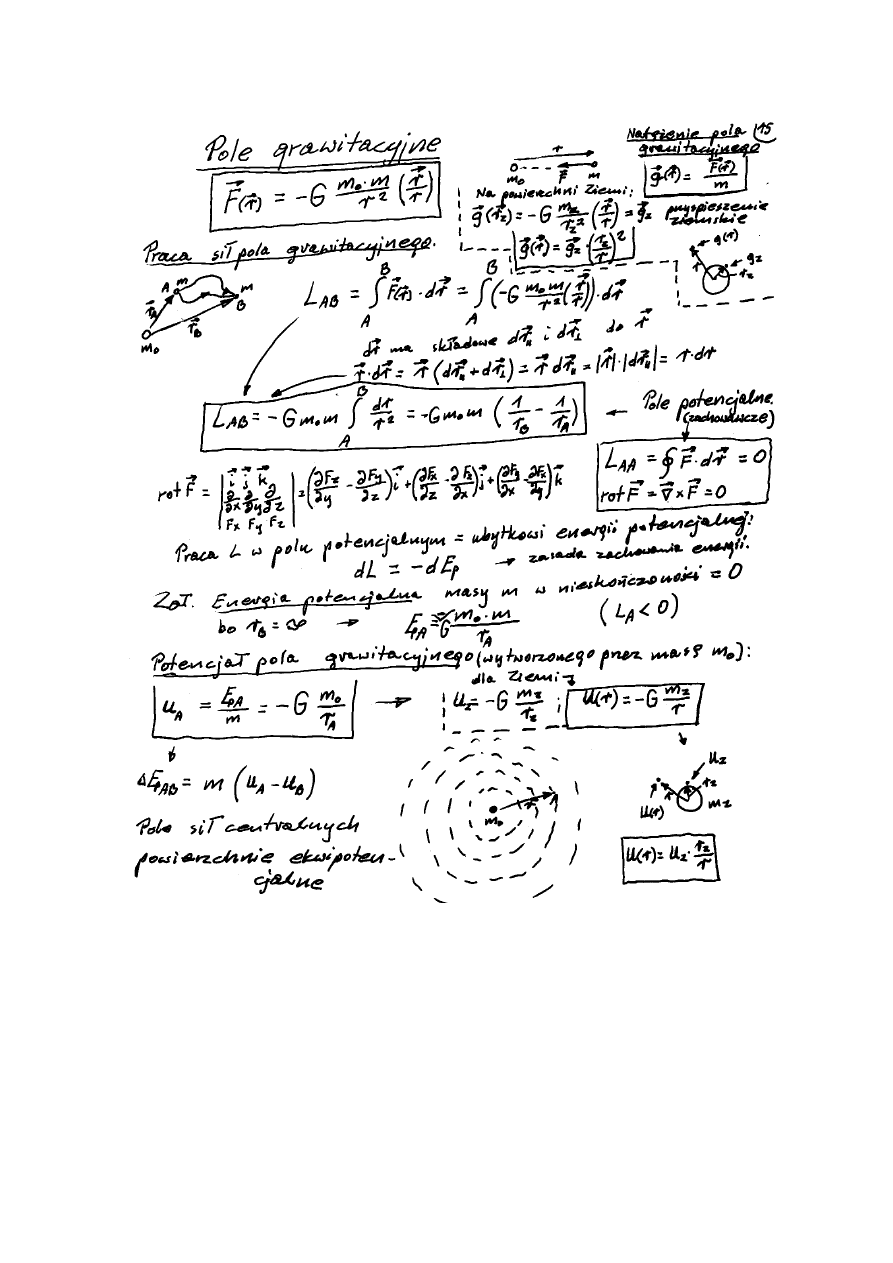 Natężenie pola 15
grawitacyjnego
Pole grawitacyjne
r⃗
m₀ F⃗ m
g⃗(r⃗) = F⃗(r⃗)/m
F⃗(r⃗) = -G m₀·m/r² (r⃗/r)
Na powierzchni Ziemi:
g⃗(r⃗z) = -G mz/rz² (r⃗/r) = g⃗z przyspieszenie
ziemskie
g⃗(r⃗) = g⃗z·(rz/r)²
g(r) gz
r rz
Praca sił pola grawitacyjnego.
A m m
B
r⃗A r⃗B
m₀
L_AB = ∫_A^B F⃗(r⃗)·dr⃗ = ∫_A^B (-G m₀m/r² (r⃗/r))·dr⃗
dr⃗ ma składowe dr⃗ₗₗ i dr⃗⊥ do r⃗
r⃗·dr⃗ = r⃗(dr⃗ₗₗ + dr⃗⊥) = r⃗ dr⃗ₗₗ = |r⃗|·|dr⃗ₗₗ| = r·dr
L_AB = -Gm₀m ∫_A^B dr/r² = -Gm₀m (1/r_B - 1/r_A) ← Pole potencjalne
(zachowawcze)
L_AA = ∮ F⃗·dr⃗ = 0
rot F⃗ = ∇⃗×F⃗ = 0
rot F⃗ = | i⃗ j⃗ k⃗ ; ∂/∂x ∂/∂y ∂/∂z ; Fx Fy Fz | = (∂Fz/∂y - ∂Fy/∂z)i⃗ + (∂Fx/∂z - ∂Fz/∂x)j⃗ + (∂Fy/∂x - ∂Fx/∂y)k⃗
Praca L w polu potencjalnym = ubytkowi energii potencjalnej:
dL = -dEp → zasada zachowania energii.
Zał. Energia potencjalna masy m w nieskończoności = 0
bo r_B = ∞ → E_pA = -G m₀·m/r_A (L_A < 0)
Potencjał pola grawitacyjnego (wytworzonego przez masę m₀):
dla Ziemi
u_A = E_pA/m = -G m₀/r_A → Uz = -G mz/rz ; U(r) = -G mz/r
ΔE_pAB = m (u_A - u_B)
m₀ r A
Uz
rz
U(r) r mz
Pole sił centralnych
powierzchnie ekwipoten-
cjalne
U(r) = Uz·rz/r